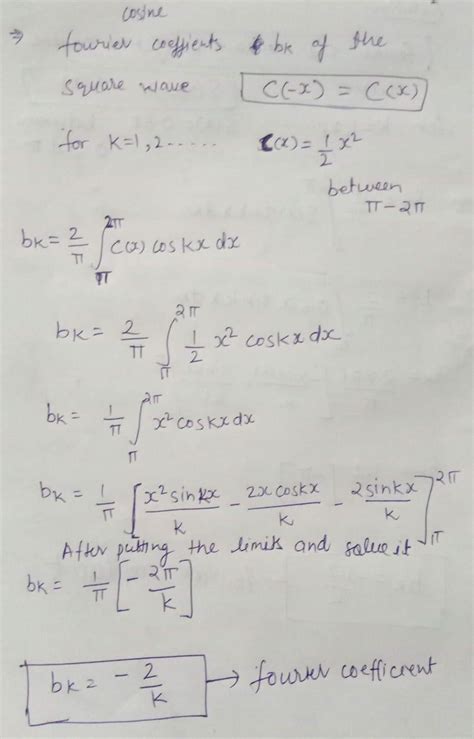 cosine
⇒ fourier coeffients bk of the
square wave C(-x) = C(x)
for k=1,2...... C(x) = 1/2 x²
between
π-2π
bk = 2/π ∫_π^2π C(x) cos kx dx
bk = 2/π ∫_π^2π 1/2 x² cos kx dx
bk = 1/π ∫_π^2π x² cos kx dx
bk = 1/π [x² sin kx / k - 2x cos kx / k - 2 sin kx / k]_π^2π
After putting the limits and solve it
bk = 1/π [- 2π/k]
bk = - 2/k → fourier coefficient